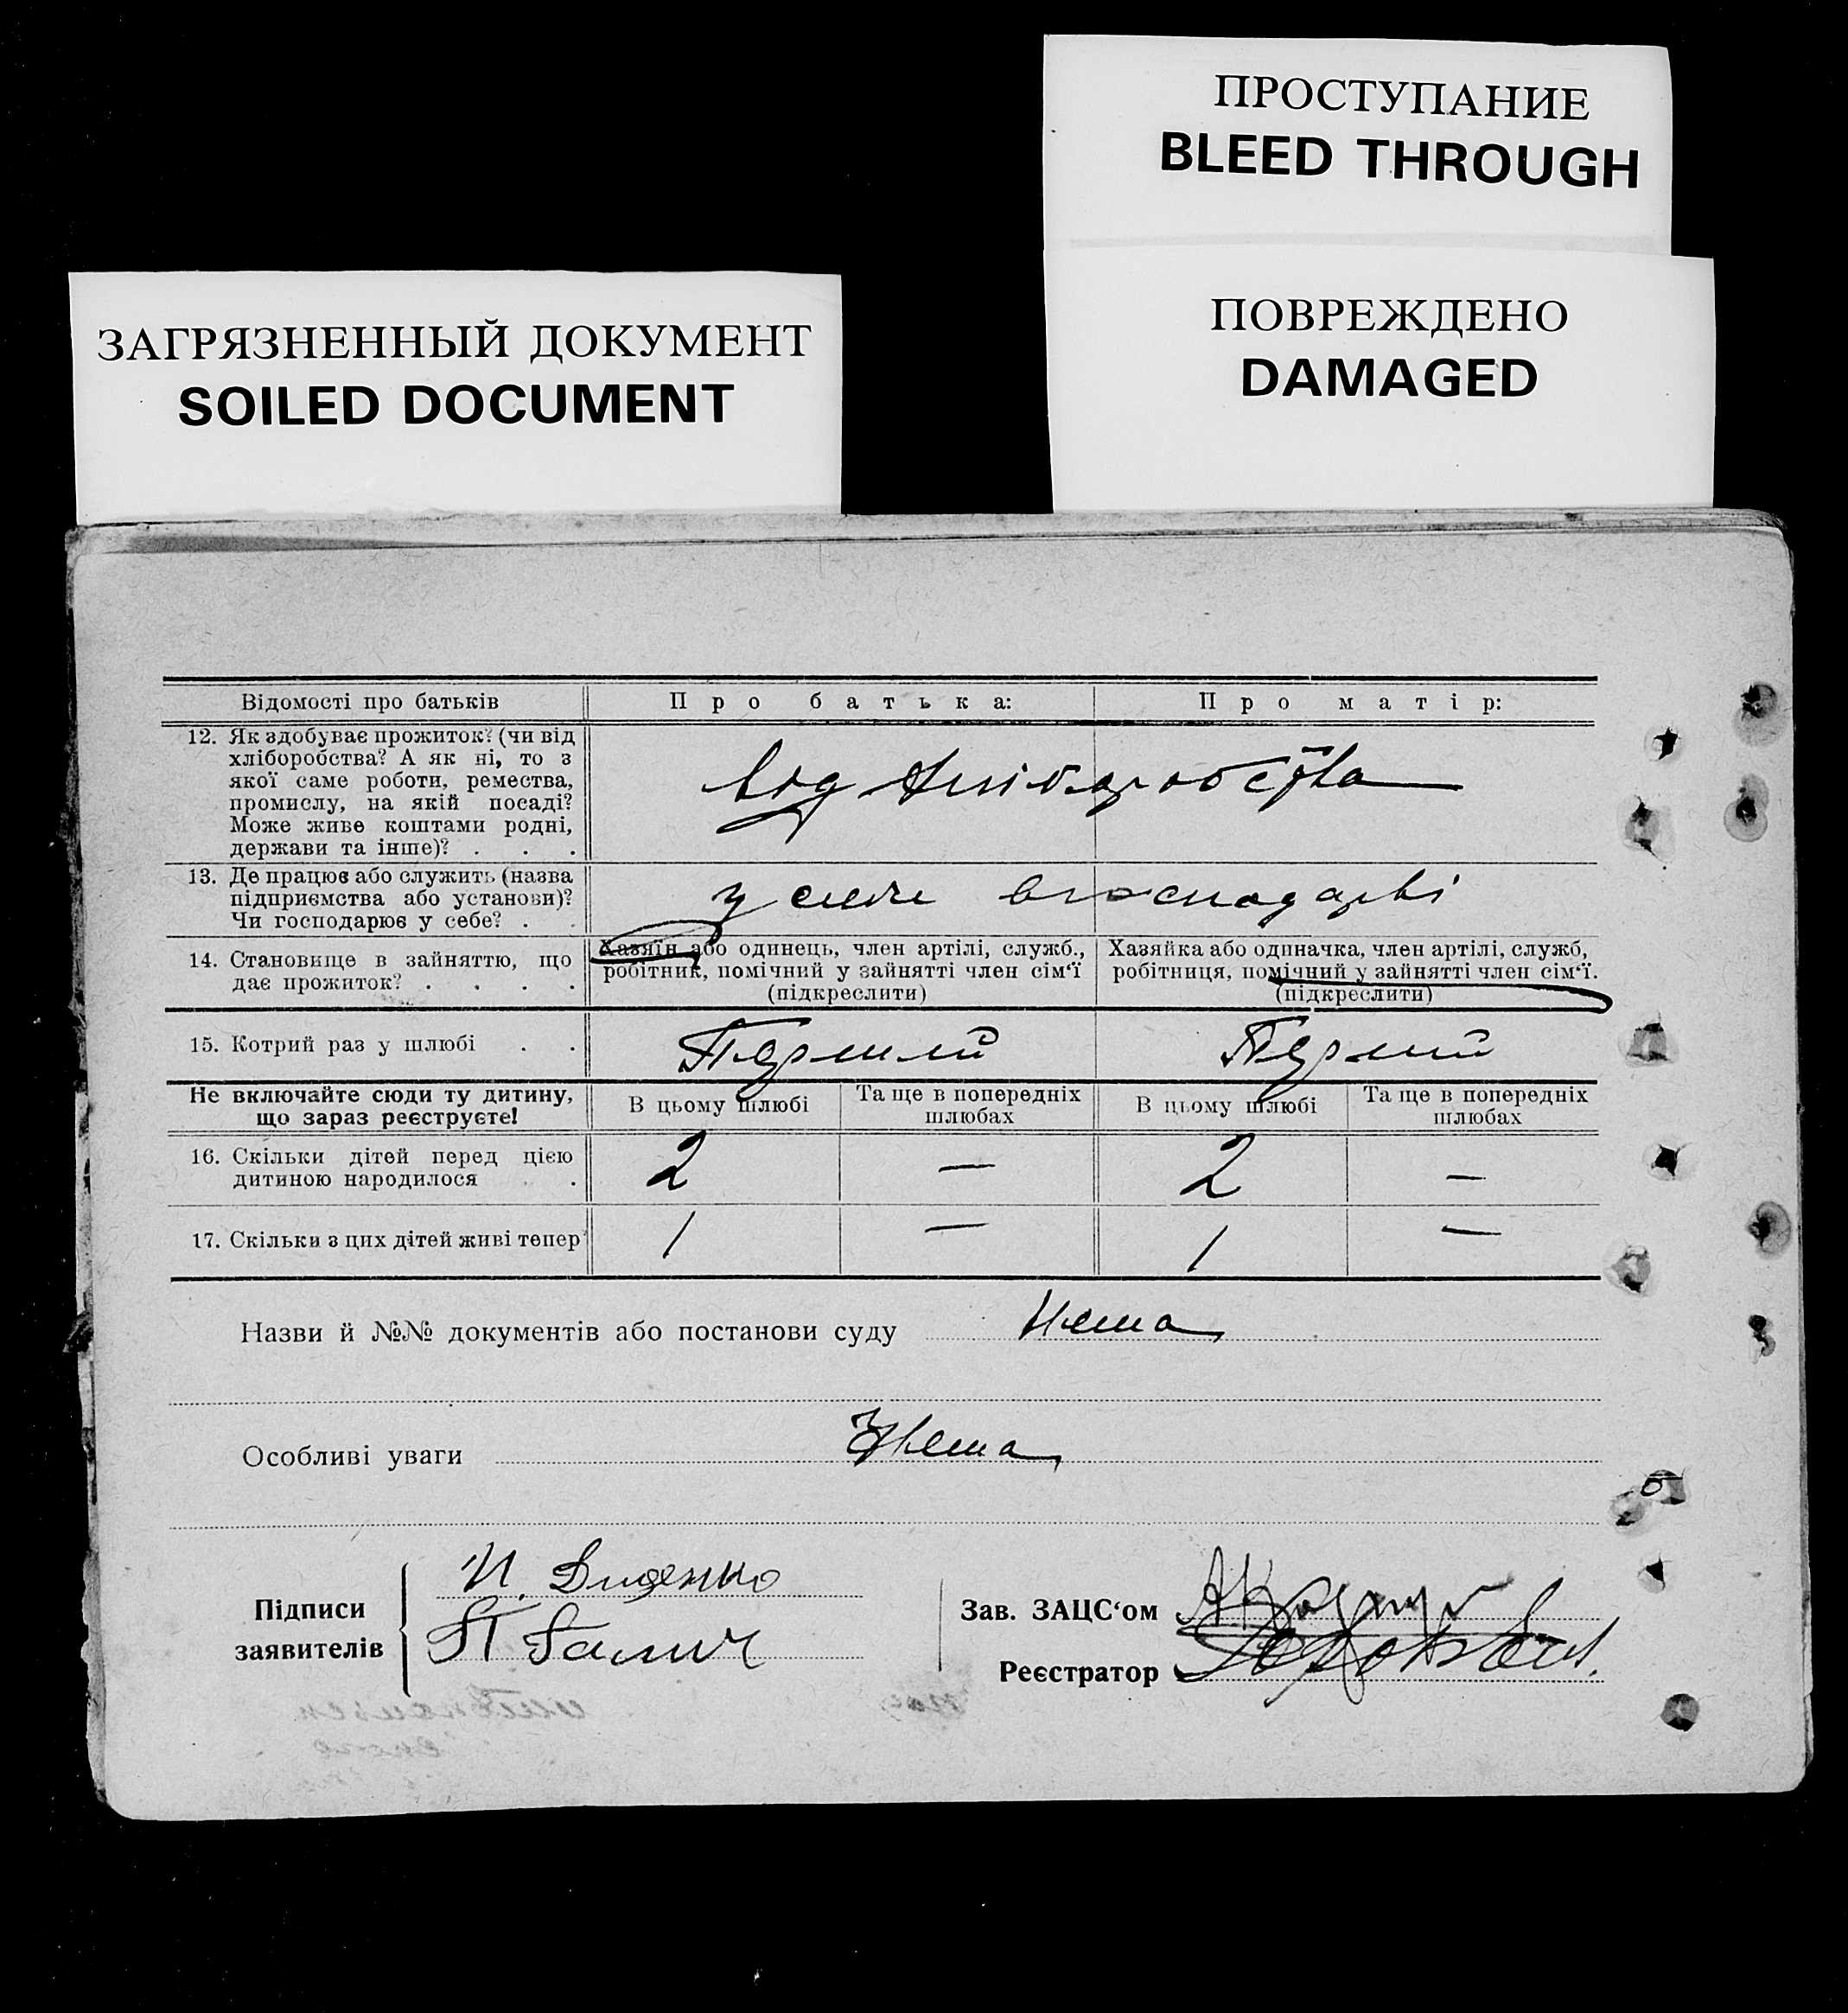 ПРОСТУПАНИЕ
BLEED THROUGH
ЗАГРЯЗНЕННЫЙ ДОКУМЕНТ
SOILED DOCUMENT
ПОВРЕЖДЕНО
DAMAGED
Відомості про батьків
Про батька:
Про матір:
12. Як здобуває прожиток? (чи від
хліборобства? А як ні, то з
якої саме роботи, ремества,
промислу, на якій посаді?
Може живе коштами родні,
держави та інше)? . . .
від хліборобства
13. Де працює або служить (назва
підприємства або установи)?
Чи господарює у себе? . .
у себе в господарві
14. Становище в зайняттю, що
дає прожиток? . . . .
Хазяїн або одинець, член артілі, служб.,
робітник, помічний у зайнятті член сім‘ї
(підкреслити)
Хазяйка або одиначка, член артілі, служб,
робітниця, помічний у зайнятті член сім‘ї.
(підкреслити)
15. Котрий раз у шлюбі . .
Перший
Перший
Не включайте сюди ту дитину,
що зараз реєструєте!
В цьому шлюбі
Та ще в попередніх
шлюбах
В цьому шлюбі
Та ще в попередніх
шлюбах
16. Скільки дітей перед цією
дитиною народилося . .
2 — 2 —
17. Скільки з цих дітей живі тепер
1 — 1 —
Назви й №№ документів або постанови суду Нема
Особливі уваги Нема
Підписи
заявителів
И. Диденко
П Галич
Зав. ЗАЦС‘ом
Реєстратор